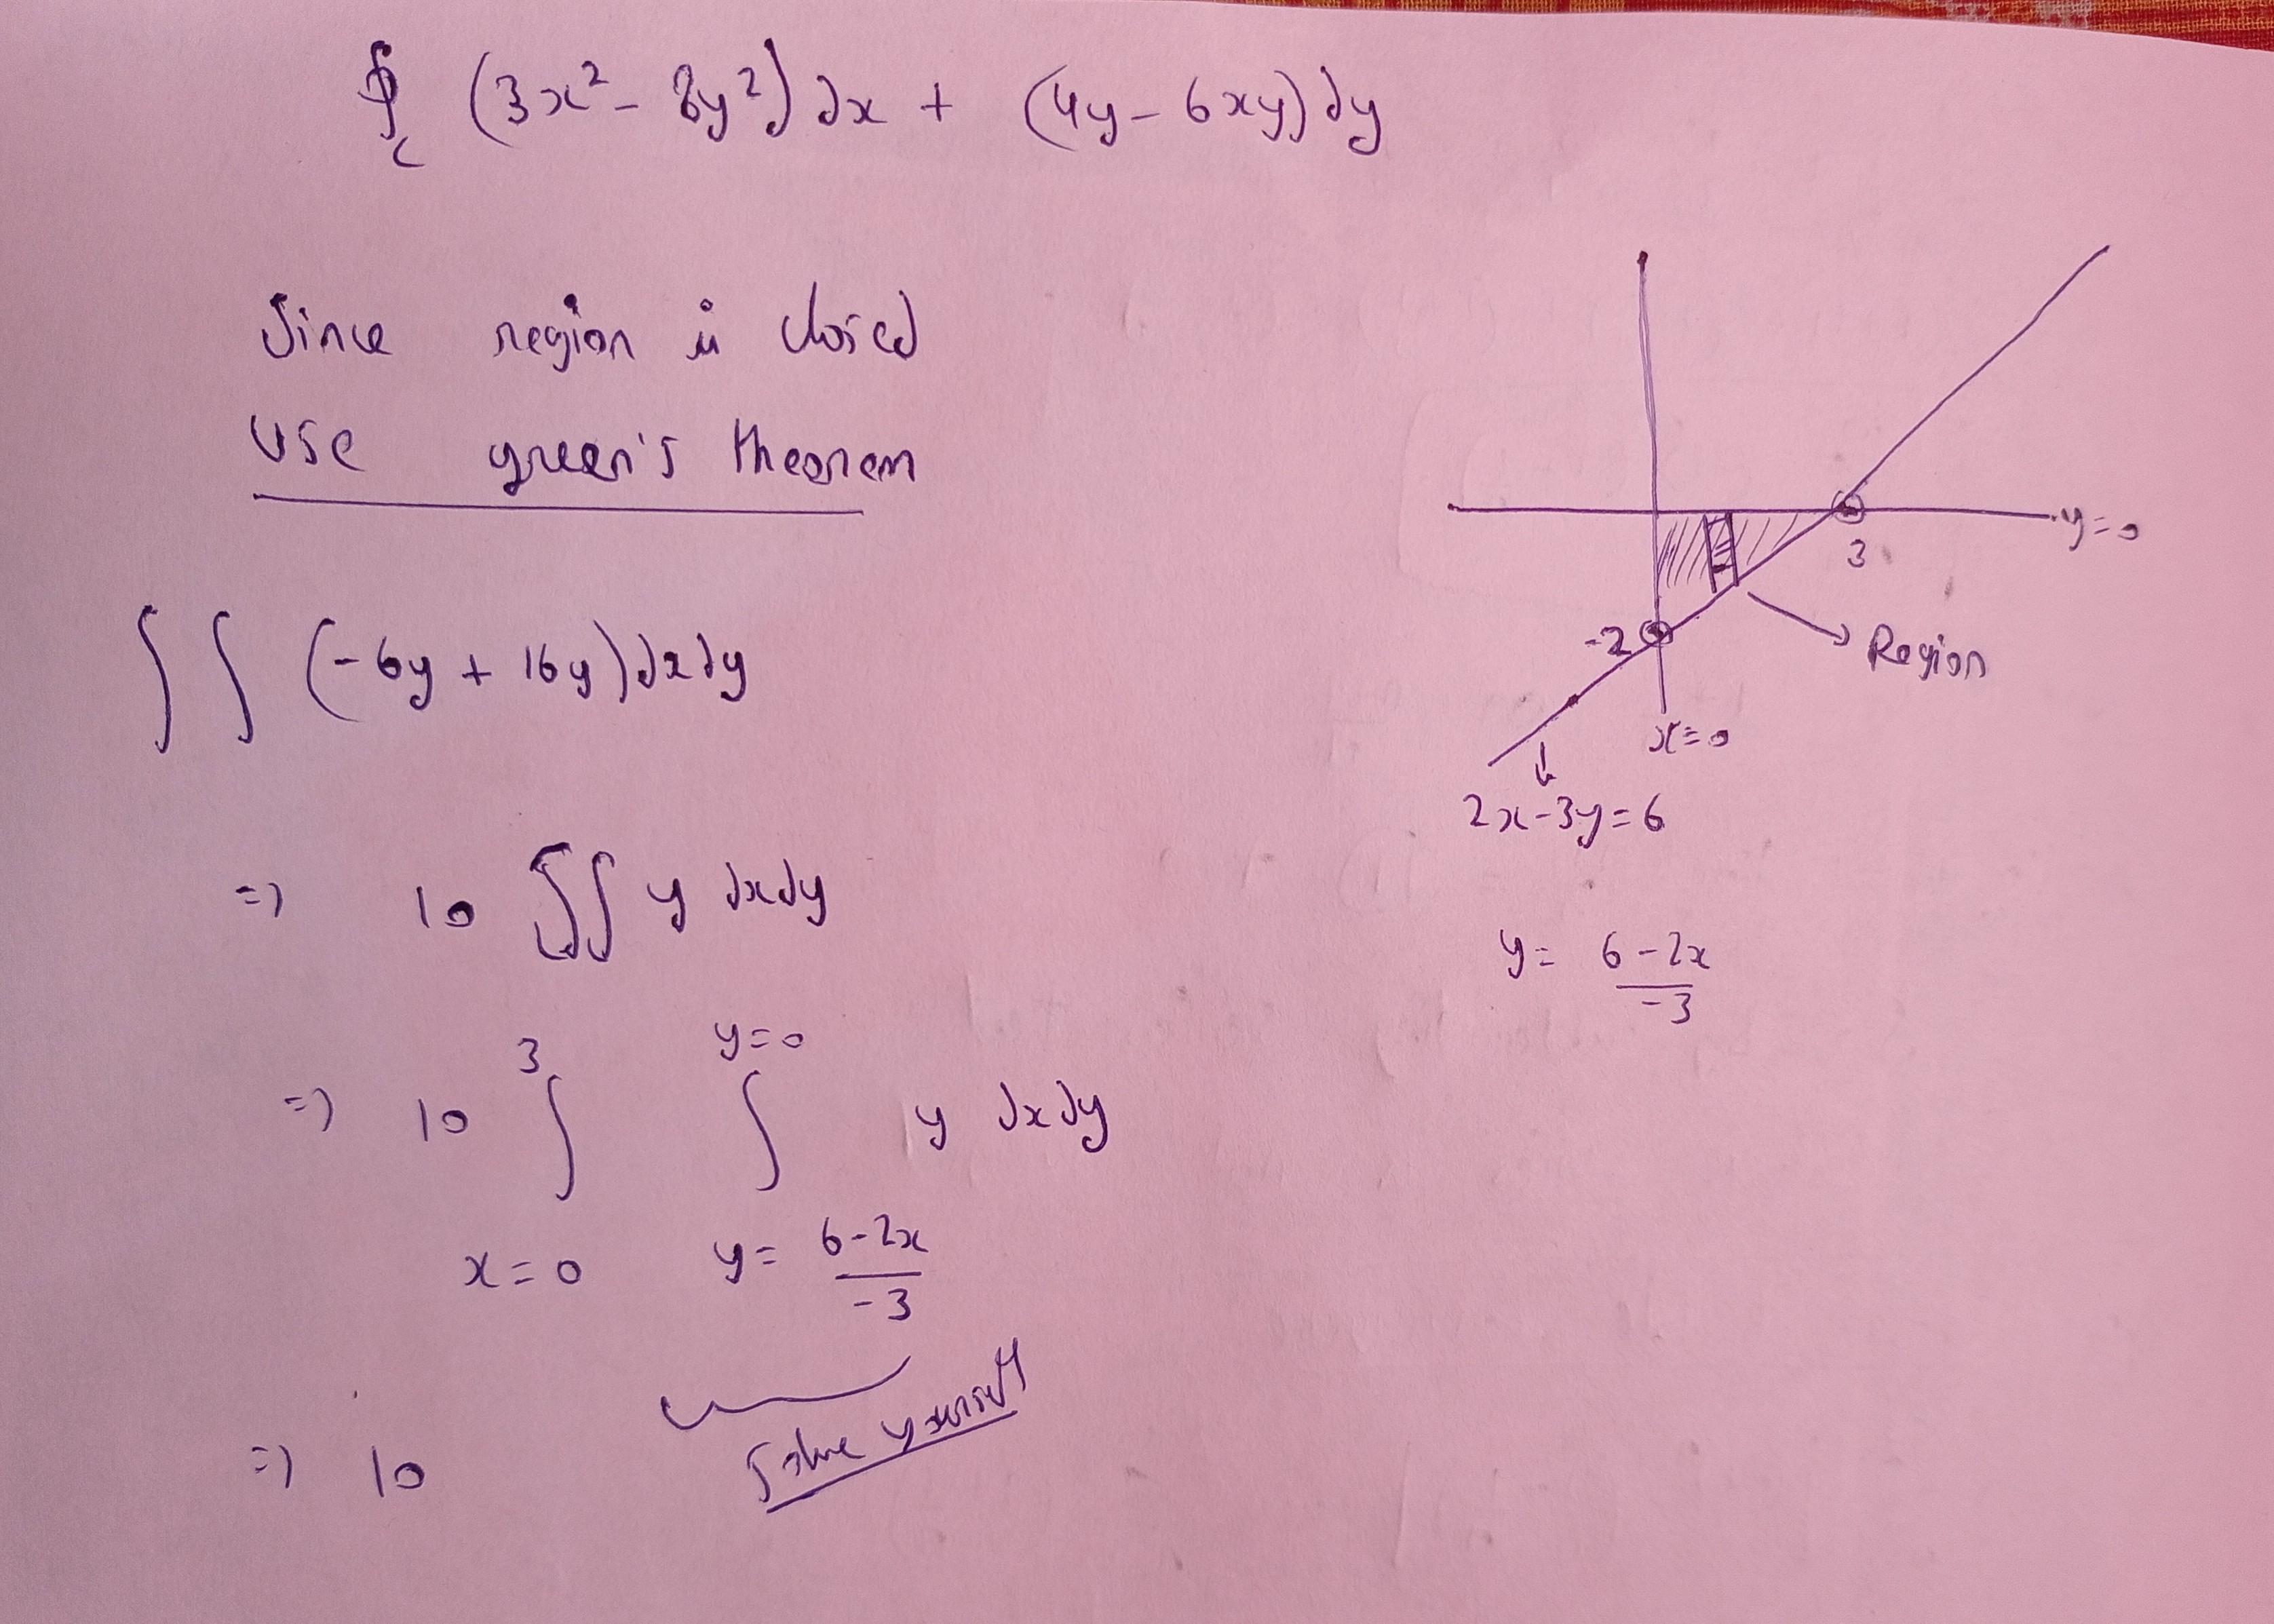 ∮c (3x² - 8y²) dx + (4y - 6xy) dy
Since region is closed
use green's theorem
∫∫ (-6y + 16y) dxdy
=> 10 ∫∫ y dxdy
3 y=0
=> 10 ∫ ∫ y dxdy
x=0 y= 6-2x
-3
Solve yourself
=> 10
y=0
3
-2
Region
x=0
2x-3y=6
y= 6-2x
-3